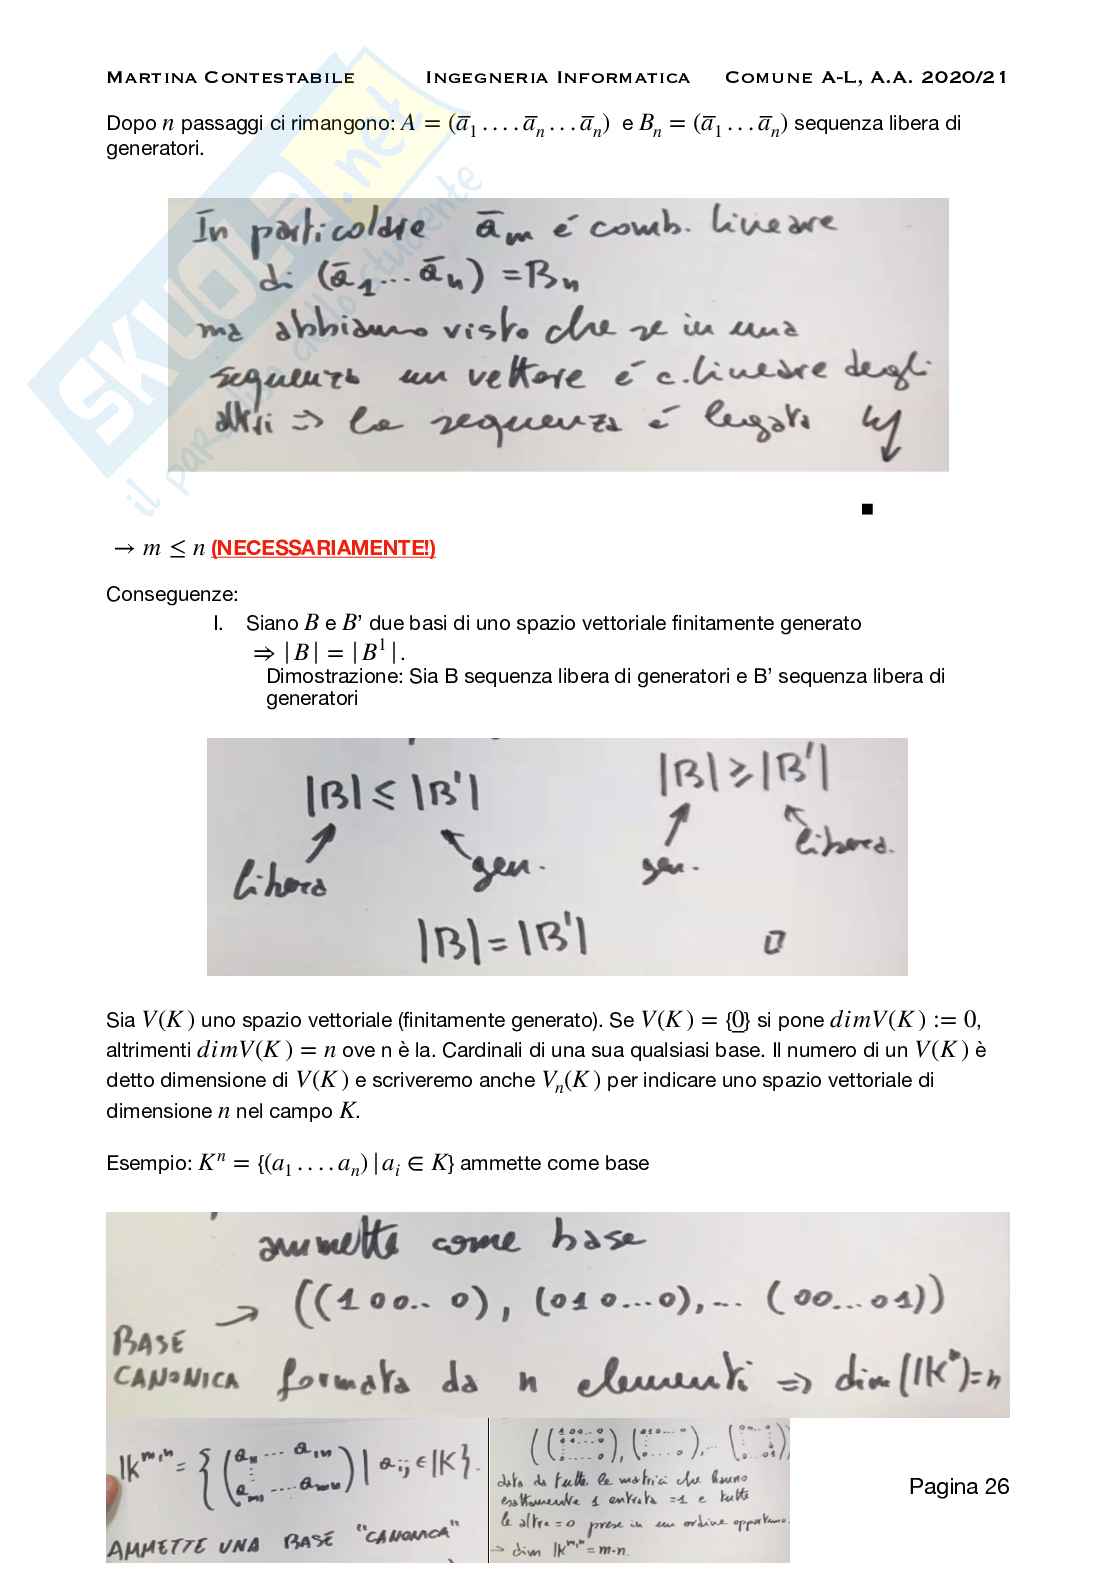 MARTINA CONTESTABILE INGEGNERIA INFORMATICA COMUNE A-L, A.A. 2020/21
Dopo n passaggi ci rimangono: A = (a̅₁ . . . . a̅ₙ . . . a̅ₙ) e Bₙ = (a̅₁ . . . a̅ₙ) sequenza libera di
generatori.
SKUOLA.net
il paradiso dello studente
In particolare a̅ₘ é comb. lineare
di (a̅₁... a̅ₙ) = Bₙ
ma abbiamo visto che se in una
sequenza un vettore é c. lineare degli
altri ⇒ la sequenza é legata
■
→ m ≤ n (NECESSARIAMENTE!)
Conseguenze:
I. Siano B e B’ due basi di uno spazio vettoriale finitamente generato
⇒ |B| = |B¹|.
Dimostrazione: Sia B sequenza libera di generatori e B’ sequenza libera di
generatori
|B| ≤ |B'| |B| ≥ |B'|
libera gen. gen. libera.
|B| = |B'| □
Sia V(K) uno spazio vettoriale (finitamente generato). Se V(K) = {0} si pone dimV(K) := 0,
altrimenti dimV(K) = n ove n è la. Cardinali di una sua qualsiasi base. Il numero di un V(K) è
detto dimensione di V(K) e scriveremo anche Vₙ(K) per indicare uno spazio vettoriale di
dimensione n nel campo K.
Esempio: Kⁿ = {(a₁ . . . . aₙ) | aᵢ ∈ K} ammette come base
ammette come base
→ ((1 0 0 .. 0), (0 1 0 ... 0), ... (0 0 ... 0 1))
BASE
CANONICA formata da n elementi ⇒ dim(Kⁿ) = n
K^{m,n} = {(a₁₁ ... a₁ₙ ⋮ aₘ₁ .... aₘₙ) | aᵢⱼ ∈ K}.
AMMETTE UNA BASE "CANONICA"
((1 0 ... 0 ⋮ 0 ... 0), (0 1 0 ... 0 ⋮ 0 ... 0), ... (0 ... 0 ⋮ 0 ... 0 1))
data da tutte le matrici che hanno
esattamente 1 entrata = 1 e tutte
le altre = 0 prese in un ordine opportuno.
→ dim K^{m,n} = m·n.
Pagina 26